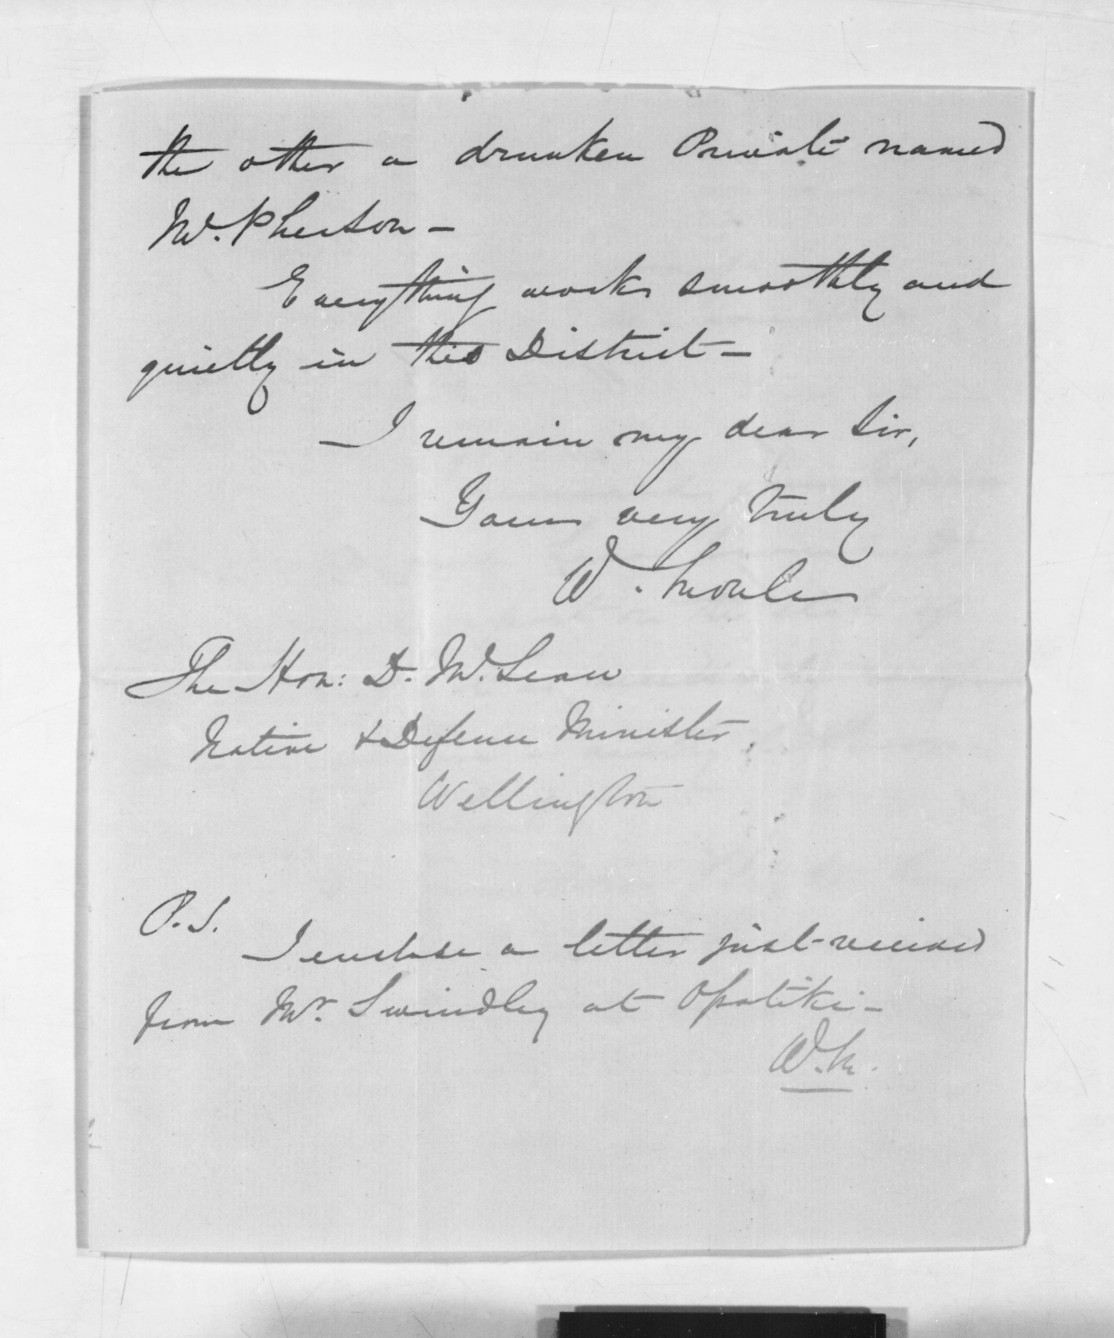 the other a drunken Private named
McPherson -
Everything works smoothly and
quietly in this District -
I remain my dear Sir,
Yours very truly
W. Moule
The Hon: D. McLean
Native & Defence Minister
Wellington
P.S.
I enclose a letter just received
from Mr. Swindley at Opotiki -
W.M.